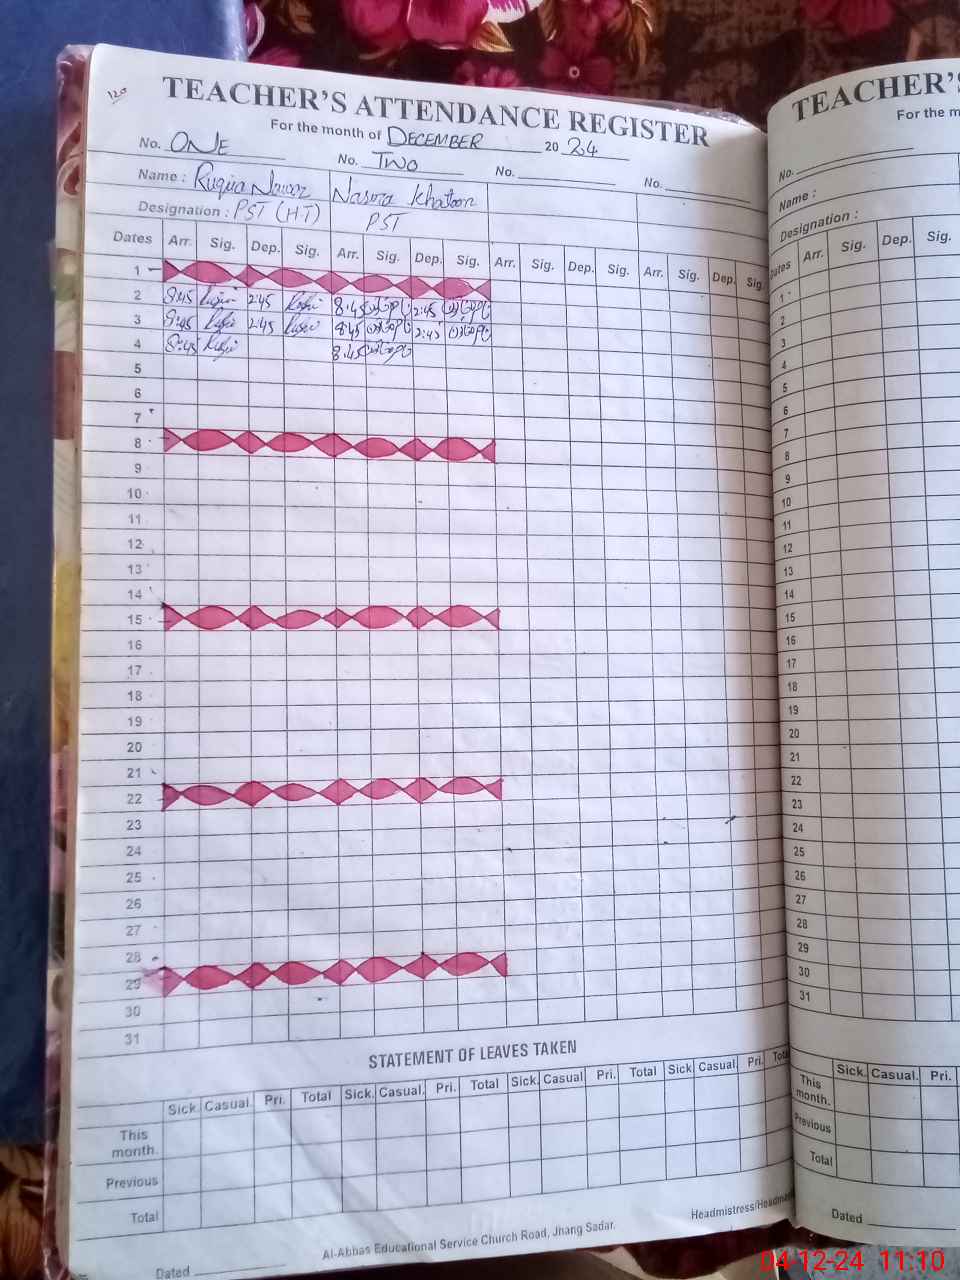 120
TEACHER'S ATTENDANCE REGISTER
For the month of DECEMBER 2024
No. ONE No. TWO No. No.
Name : Ruqia Nawaz Nasra Khatoon
Designation : PST (HT) PST
Dates Arr. Sig. Dep. Sig. Arr. Sig. Dep. Sig. Arr. Sig. Dep. Sig. Arr. Sig. Dep. Sig.
1
2 8:45 2:45 8:45 2:45
3 8:45 2:45 8:45 2:45
4 8:45 8:45
5
6
7
8
9
10
11
12
13
14
15
16
17
18
19
20
21
22
23
24
25
26
27
28
29
30
31
STATEMENT OF LEAVES TAKEN
Sick. Casual. Pri. Total Sick. Casual. Pri. Total Sick. Casual Pri. Total Sick Casual. Pri. Total
This
month.
Previous
Total
Al-Abbas Educational Service Church Road, Jhang Sadar.
Headmistress/Headma
Dated
TEACHER'S
For the m
No.
Name :
Designation :
Dates Arr. Sig. Dep. Sig.
1
2
3
4
5
6
7
8
9
10
11
12
13
14
15
16
17
18
19
20
21
22
23
24
25
26
27
28
29
30
31
Sick. Casual. Pri.
This
month.
Previous
Total
Dated
04-12-24 11:10